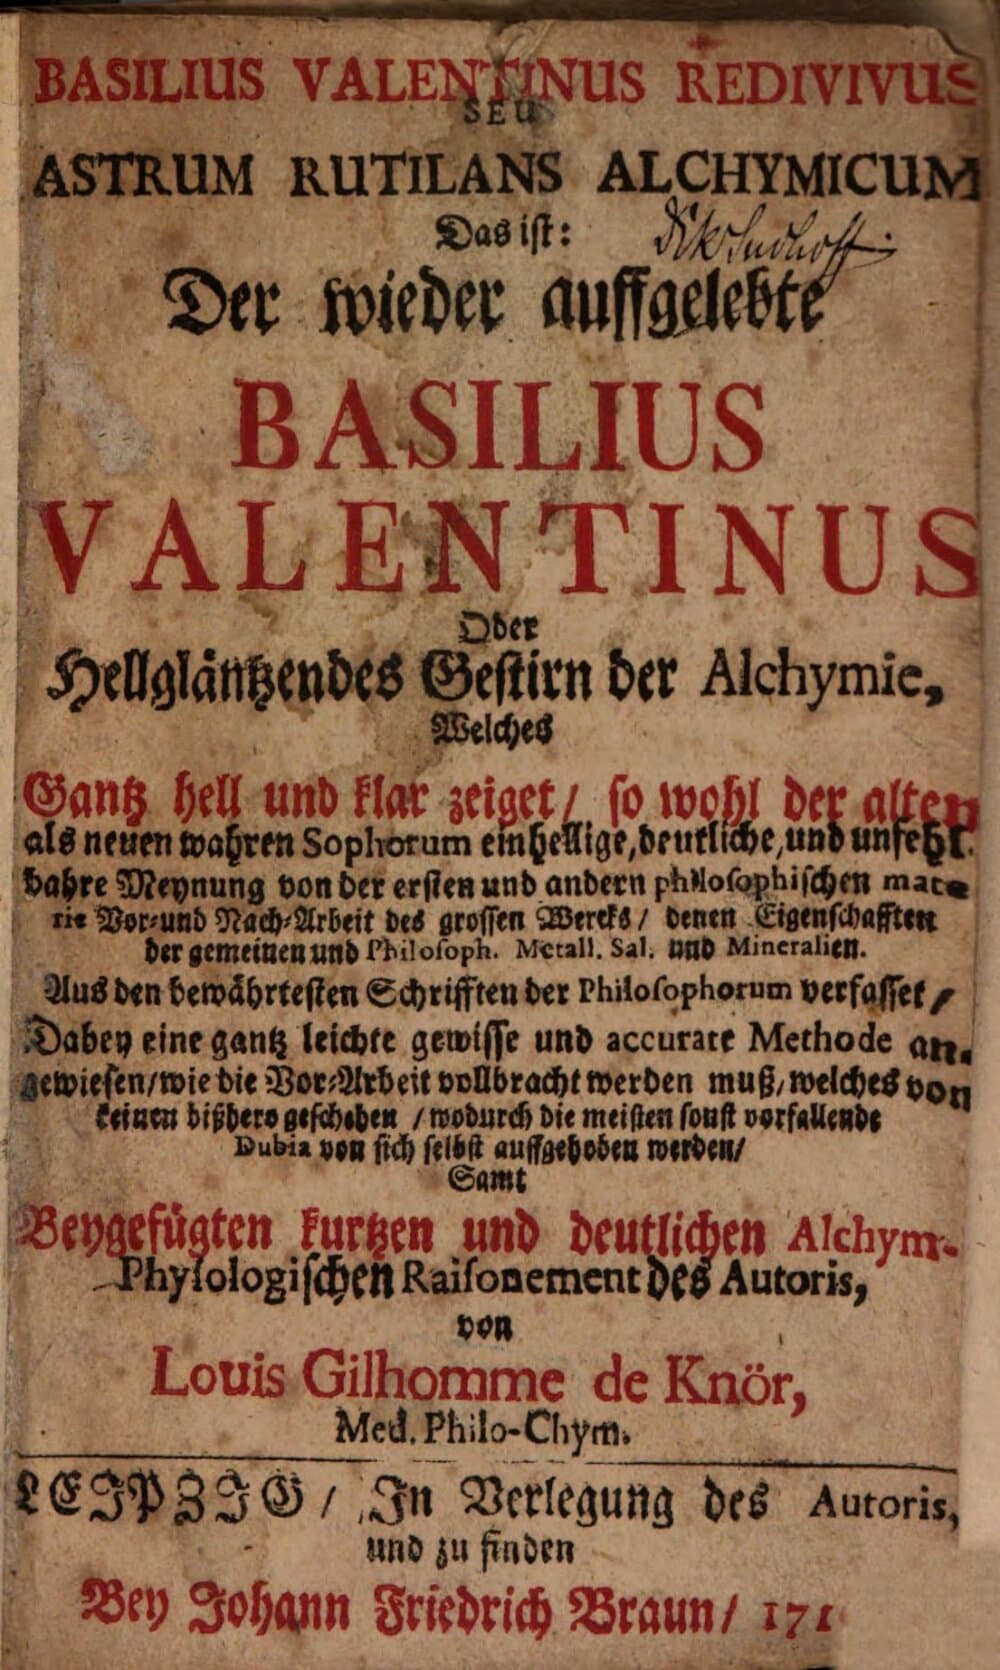 BASILIUS VALENTINUS REDIVIVUS
SEU
ASTRUM RUTILANS ALCHYMICUM
Das ist:
Der wieder auffgelebte
BASILIUS
VALENTINUS
Oder
Hellgläntzendes Gestirn der Alchymie,
Welches
Gantz hell und klar zeiget/ so wohl der alten
als neuen wahren Sophorum einhellige, deutliche, und unfehl-
bahre Meynung von der ersten und andern philosophischen mate-
rie Vor-und Nach-Arbeit des grossen Wercks/ denen Eigenschafften
der gemeinen und Philosoph. Metall. Sal. und Mineralien.
Aus den bewährtesten Schrifften der Philosophorum verfasset/
Dabey eine gantz leichte gewisse und accurate Methode an-
gewiesen/wie die Vor-Arbeit vollbracht werden muß/welches von
keinen bißhero geschehen /wodurch die meisten sonst vorfallende
Dubia von sich selbst auffgehoben werden/
Samt
Beygefügten kurtzen und deutlichen Alchym-
Physologischen Raisonement des Autoris,
von
Louis Gilhomme de Knör,
Med. Philo-Chym.
LEIPZIG/ In Verlegung des Autoris,
und zu finden
Bey Johann Friedrich Braun/ 171